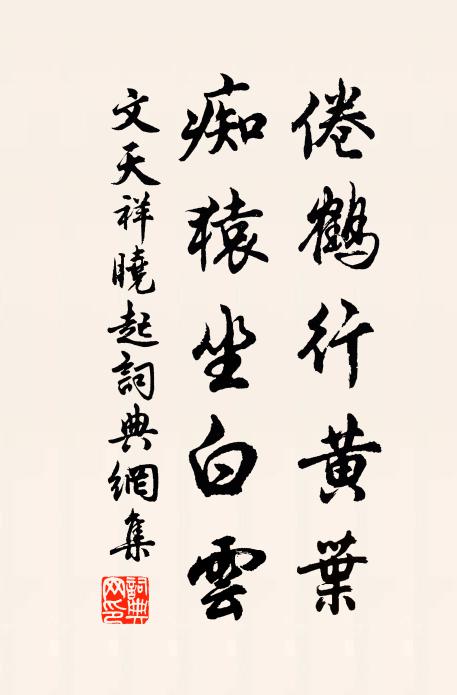 倦鶴行黄葉
痴猿坐白雲
文天祥曉起詞典網集
詞典網印